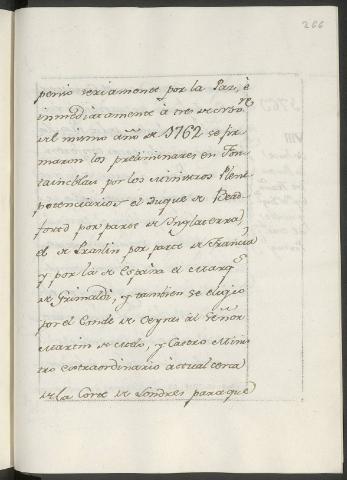 266
penso seriamente por la Paz, è
inmediatamente à tres de Nov.re
del mismo año de 1762 se fir
maron los preliminares en Fon
tainebleau por los Ministros Pleni
potenciarios el Duque de Bed
ford por parte de Inglaterra,
el de Praslin por parte de Francia,
y por la de España el Marq.s
de Grimaldi, y tambien se eligio
por el Conde de Oeyras al Señor
Martin de Melo, y Castro Minis
tro extraordinario actual cerca
de la Corte de Londres para que